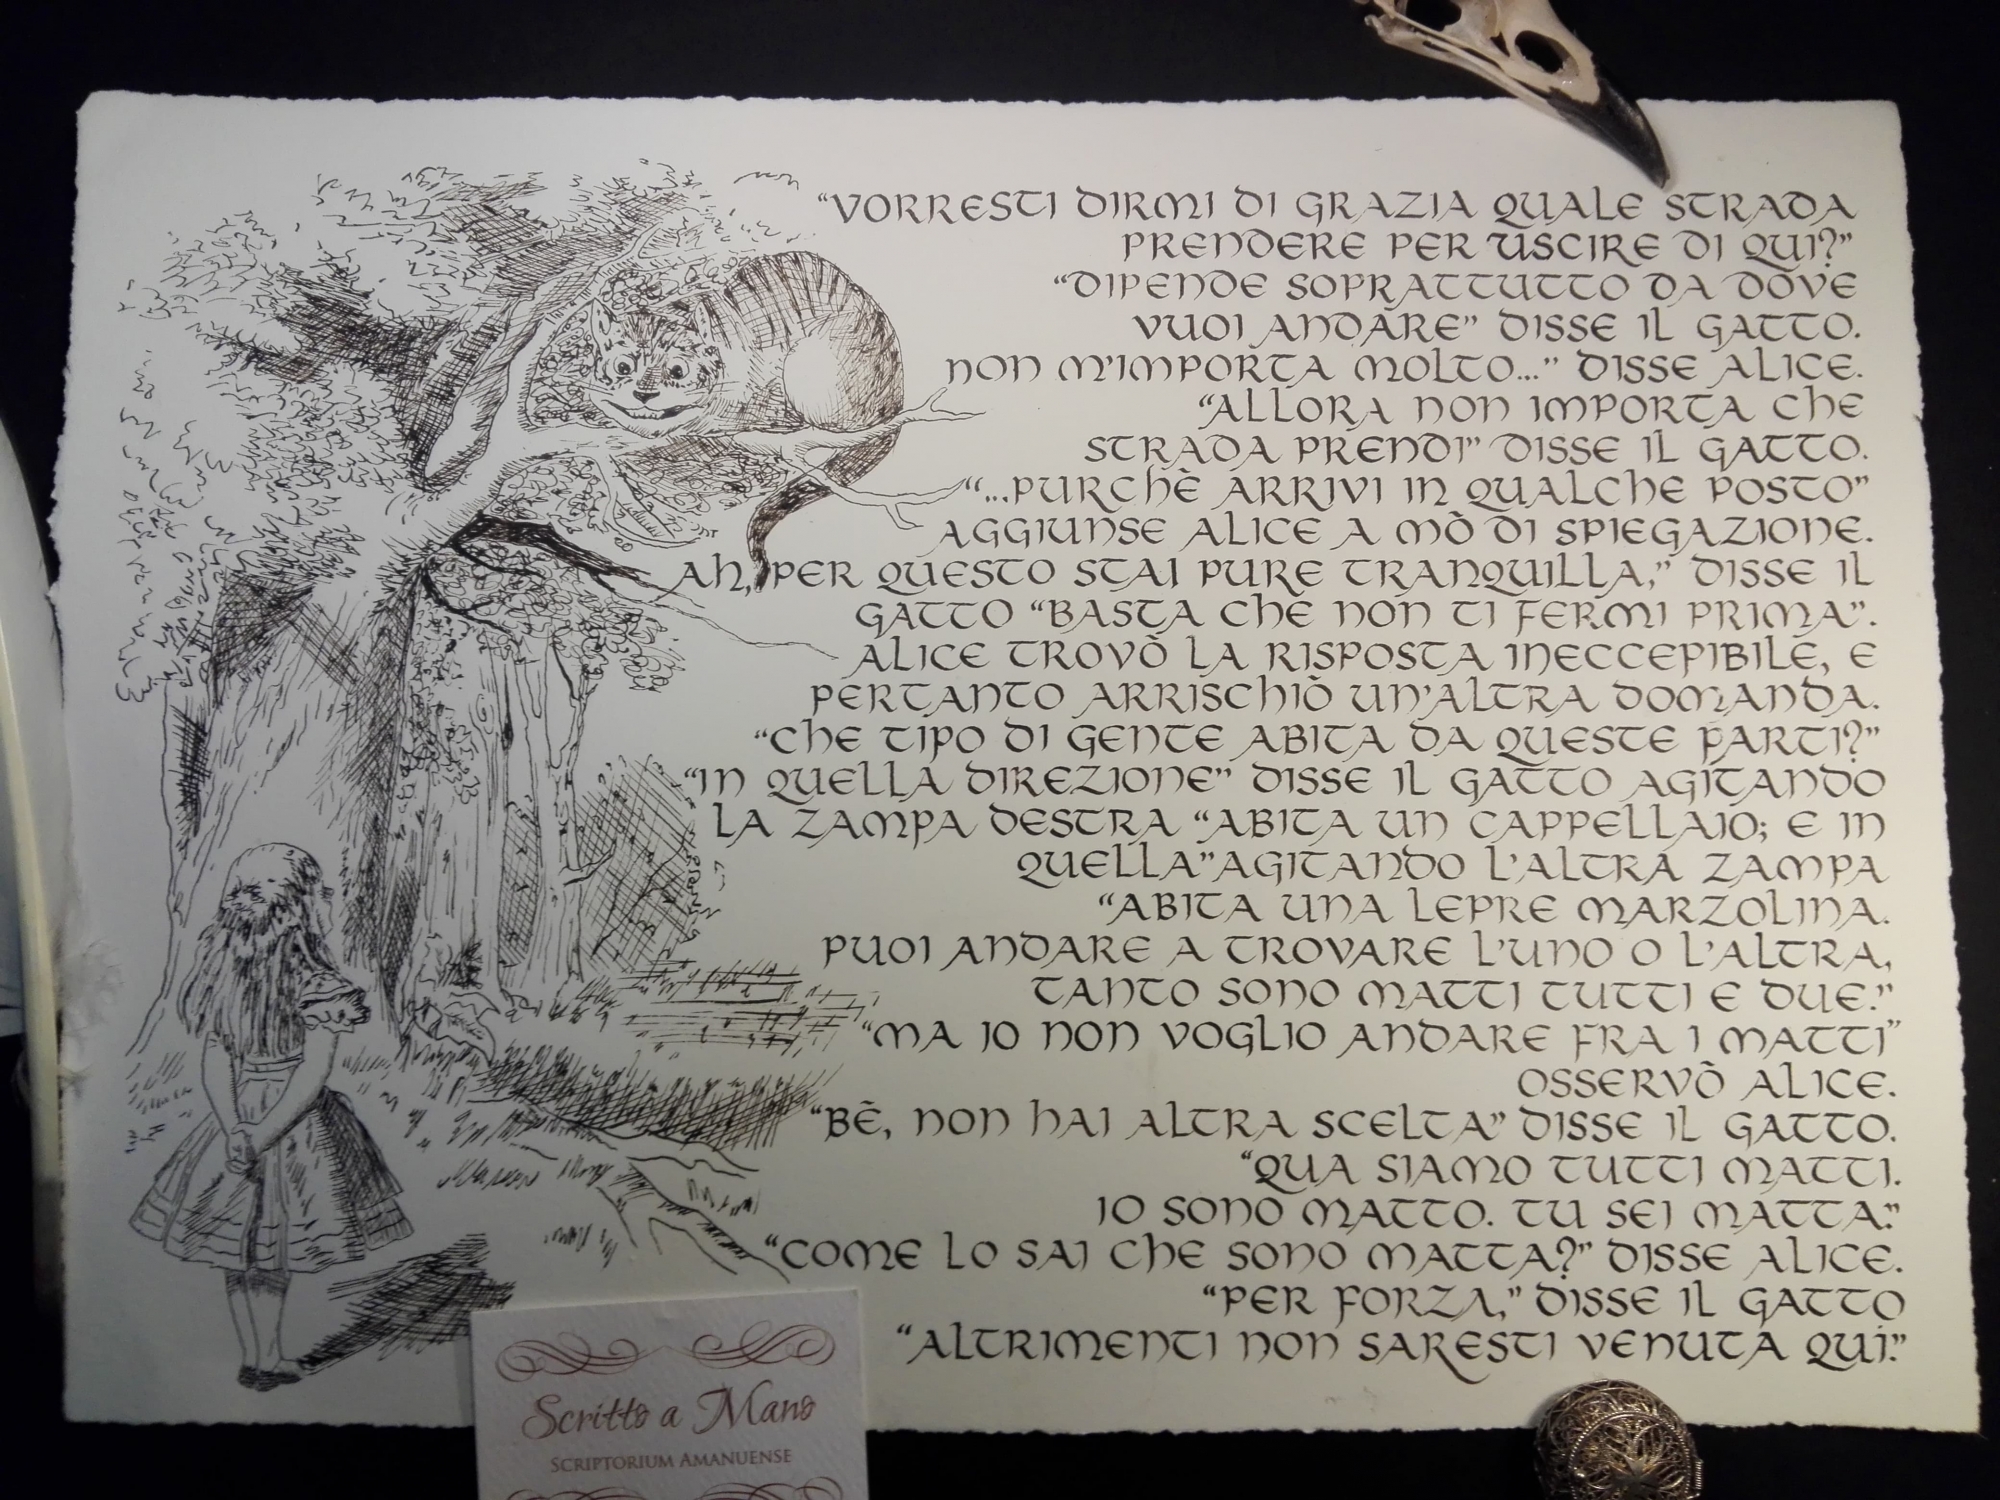 “VORRESTI DIRMI DI GRAZIA QUALE STRADA
PRENDERE PER USCIRE DI QUI?”
“DIPENDE SOPRATTUTTO DA DOVE
VUOI ANDARE” DISSE IL GATTO.
NON M'IMPORTA MOLTO...” DISSE ALICE.
“ALLORA NON IMPORTA CHE
STRADA PRENDI” DISSE IL GATTO.
“...PURCHÈ ARRIVI IN QUALCHE POSTO”
AGGIUNSE ALICE A MÒ DI SPIEGAZIONE.
AH, PER QUESTO STAI PURE TRANQUILLA,” DISSE IL
GATTO “BASTA CHE NON TI FERMI PRIMA”.
ALICE TROVÒ LA RISPOSTA INECCEPIBILE, E
PERTANTO ARRISCHIÒ UN'ALTRA DOMANDA.
“CHE TIPO DI GENTE ABITA DA QUESTE PARTI?”
“IN QUELLA DIREZIONE” DISSE IL GATTO AGITANDO
LA ZAMPA DESTRA “ABITA UN CAPPELLAIO; E IN
QUELLA” AGITANDO L'ALTRA ZAMPA
“ABITA UNA LEPRE MARZOLINA.
PUOI ANDARE A TROVARE L'UNO O L'ALTRA,
TANTO SONO MATTI TUTTI E DUE.”
“MA IO NON VOGLIO ANDARE FRA I MATTI”
OSSERVÒ ALICE.
“BÈ, NON HAI ALTRA SCELTA” DISSE IL GATTO.
“QUA SIAMO TUTTI MATTI.
IO SONO MATTO. TU SEI MATTA.”
“COME LO SAI CHE SONO MATTA?” DISSE ALICE.
“PER FORZA,” DISSE IL GATTO
“ALTRIMENTI NON SARESTI VENUTA QUI.”
Scritto a Mano
SCRIPTORIUM AMANUENSE